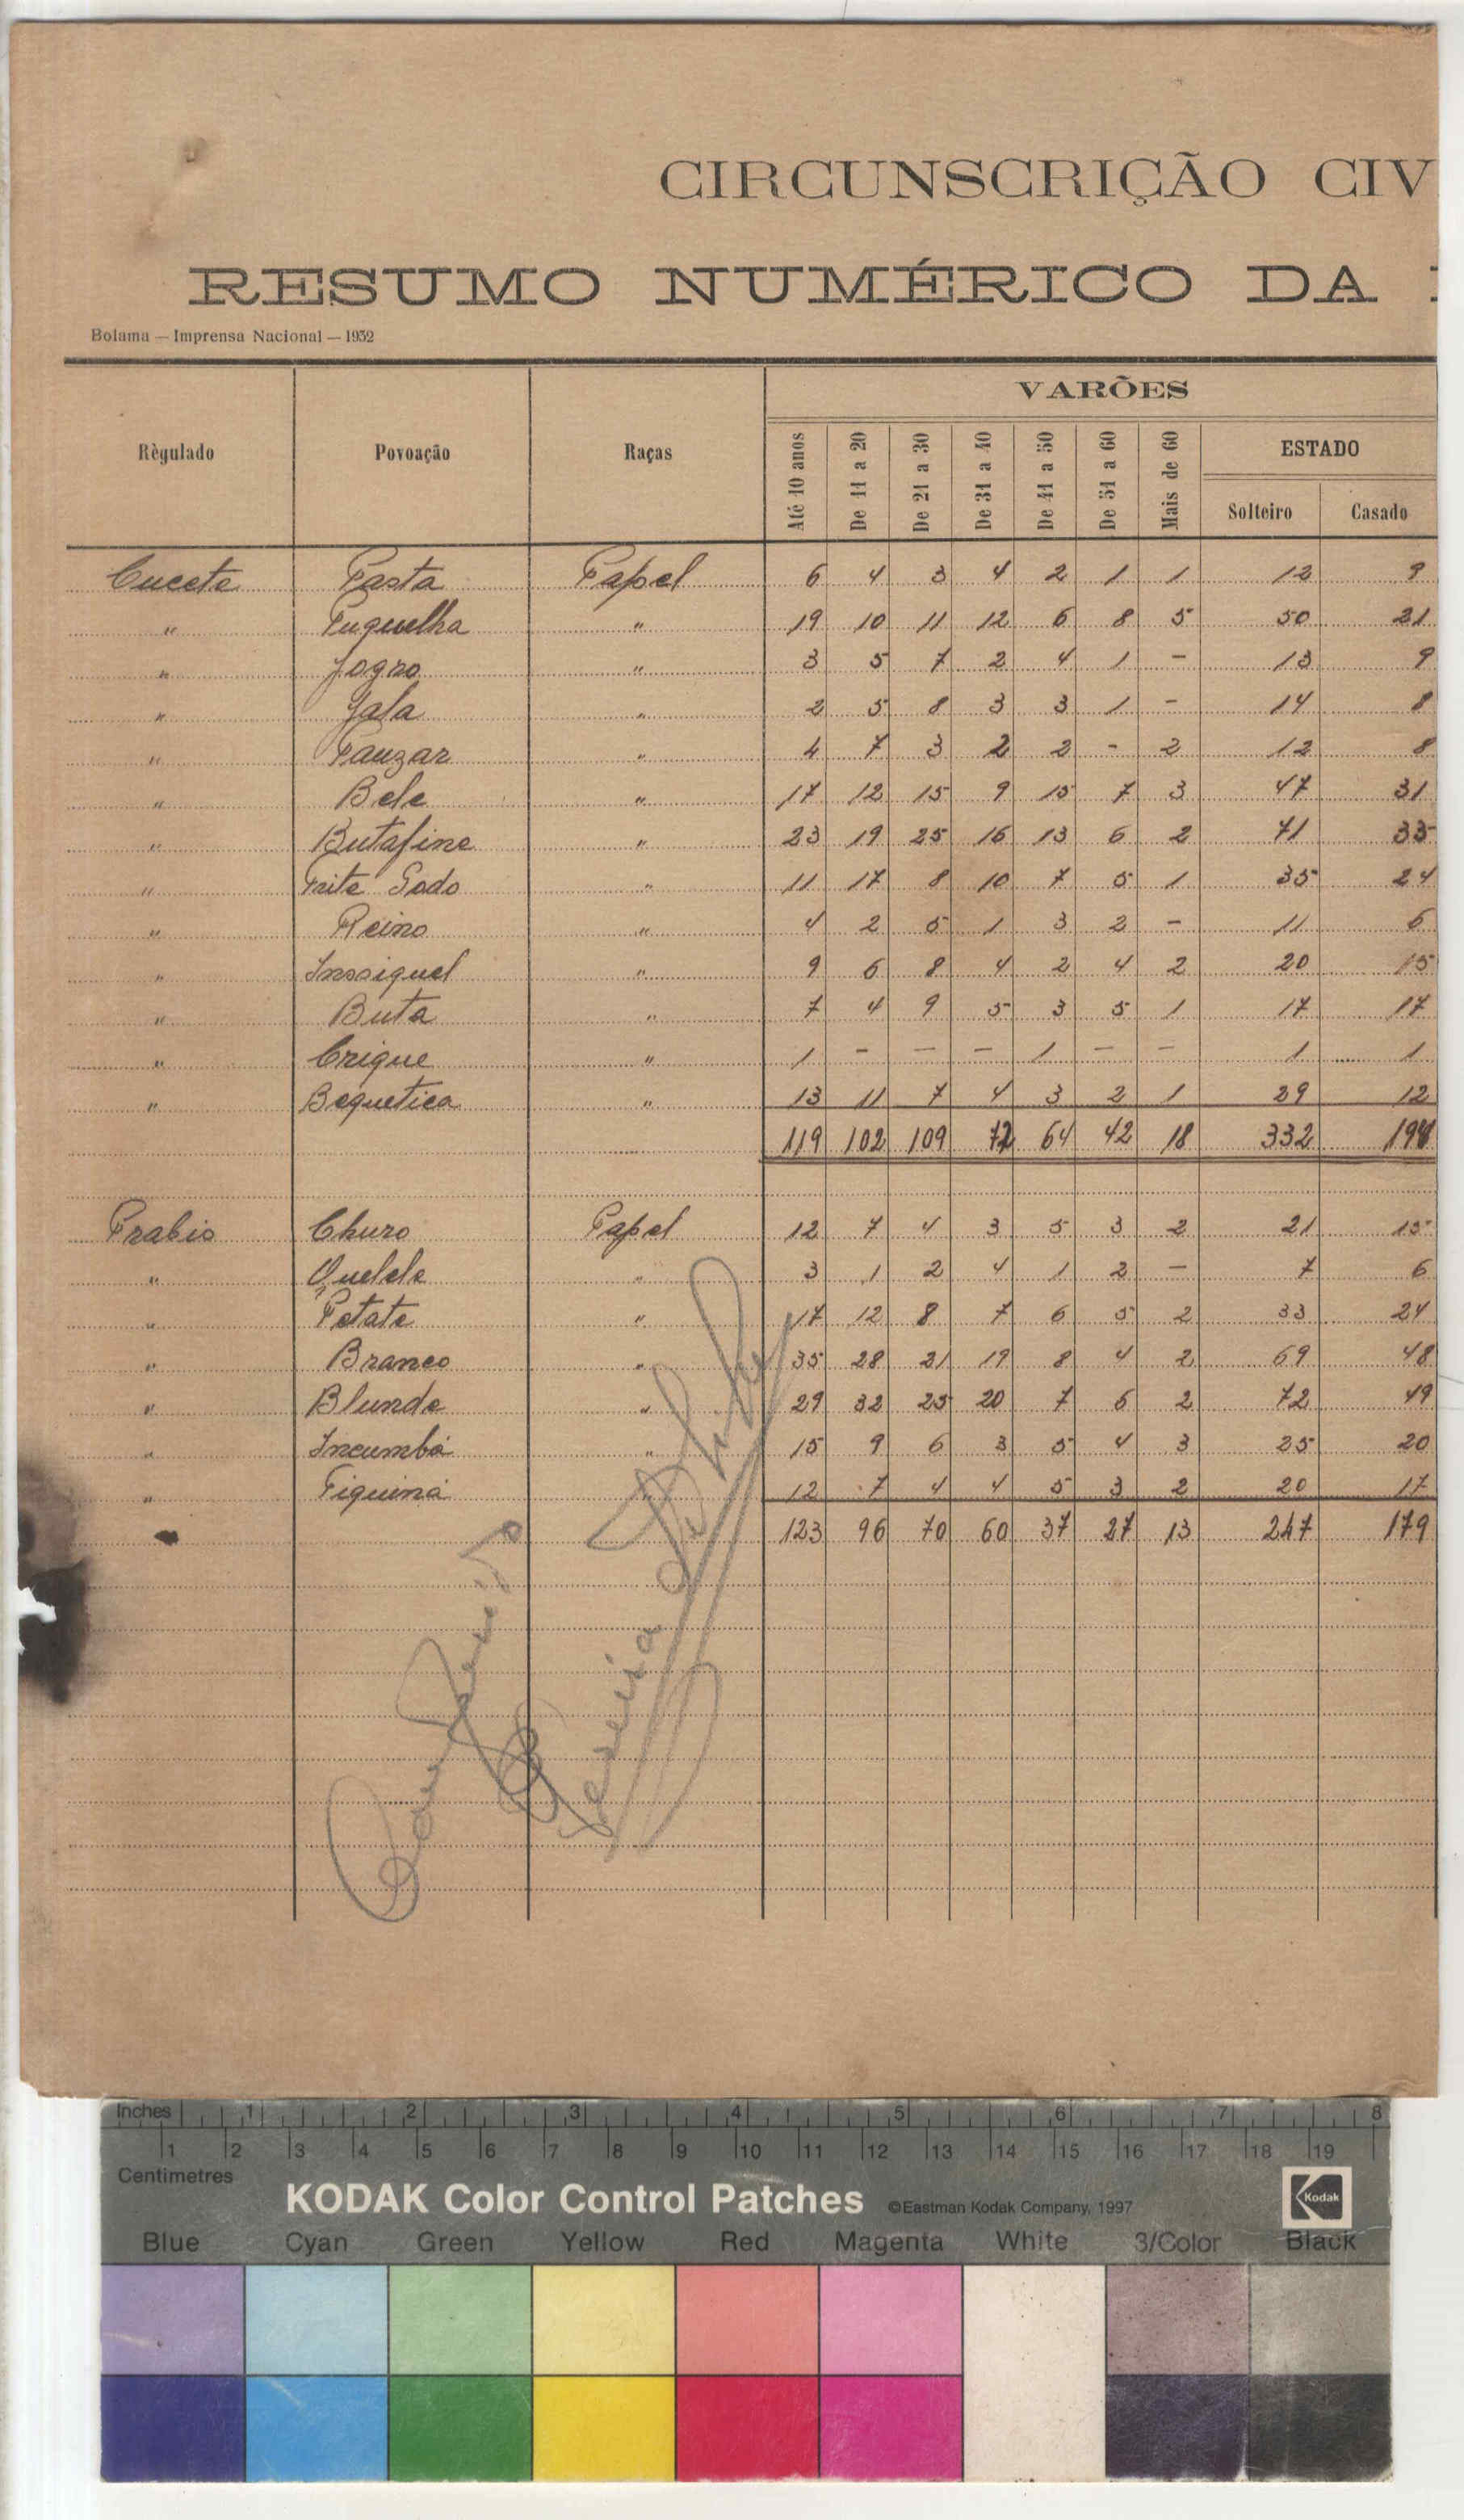 CIRCUNSCRIÇÃO CIV
RESUMO NUMÉRICO DA
Bolama — Imprensa Nacional — 1932
VARÕES
Règulado Povoação Raças Até 10 anos De 11 a 20 De 21 a 30 De 31 a 40 De 41 a 50 De 51 a 60 Mais de 60 ESTADO
Solteiro Casado
Cucete Pasta Papel 6 4 3 4 2 1 1 12 9
" Puguelha " 19 10 11 12 6 8 5 50 21
" Jogno " 3 5 7 2 4 1 - 13 9
" Jala " 2 5 8 3 3 1 - 14 8
" Pauzar " 4 7 3 2 2 - 2 12 8
" Bele " 17 12 15 9 15 7 3 47 31
" Butafine " 23 19 25 16 13 6 2 71 33
" Frite Godo " 11 17 8 10 7 5 1 35 24
" Reino " 4 2 5 1 3 2 - 11 6
" Insoiquel " 9 6 8 4 2 4 2 20 15
" Buta " 7 4 9 5 3 5 1 17 17
" Crique " 1 - - - 1 - - 1 1
" Bequetica " 13 11 7 4 3 2 1 29 12
119 102 109 72 64 42 18 332 194
Prabis Churo Papel 12 7 4 3 5 3 2 21 15
" Quelele " 3 1 2 4 1 2 - 7 6
" Petate " 17 12 8 7 6 5 2 33 24
" Branco " 35 28 21 19 8 4 2 69 48
" Blunde " 29 32 25 20 7 6 2 72 49
" Incumbá " 15 9 6 3 5 4 3 25 20
" Tiquiná " 12 7 4 4 5 3 2 20 17
" 123 96 70 60 37 27 13 247 179
Inches 1 2 3 4 5 6 7 8
1 2 3 4 5 6 7 8 9 10 11 12 13 14 15 16 17 18 19
Centimetres
KODAK Color Control Patches ©Eastman Kodak Company, 1997 Kodak
Blue Cyan Green Yellow Red Magenta White 3/Color Black